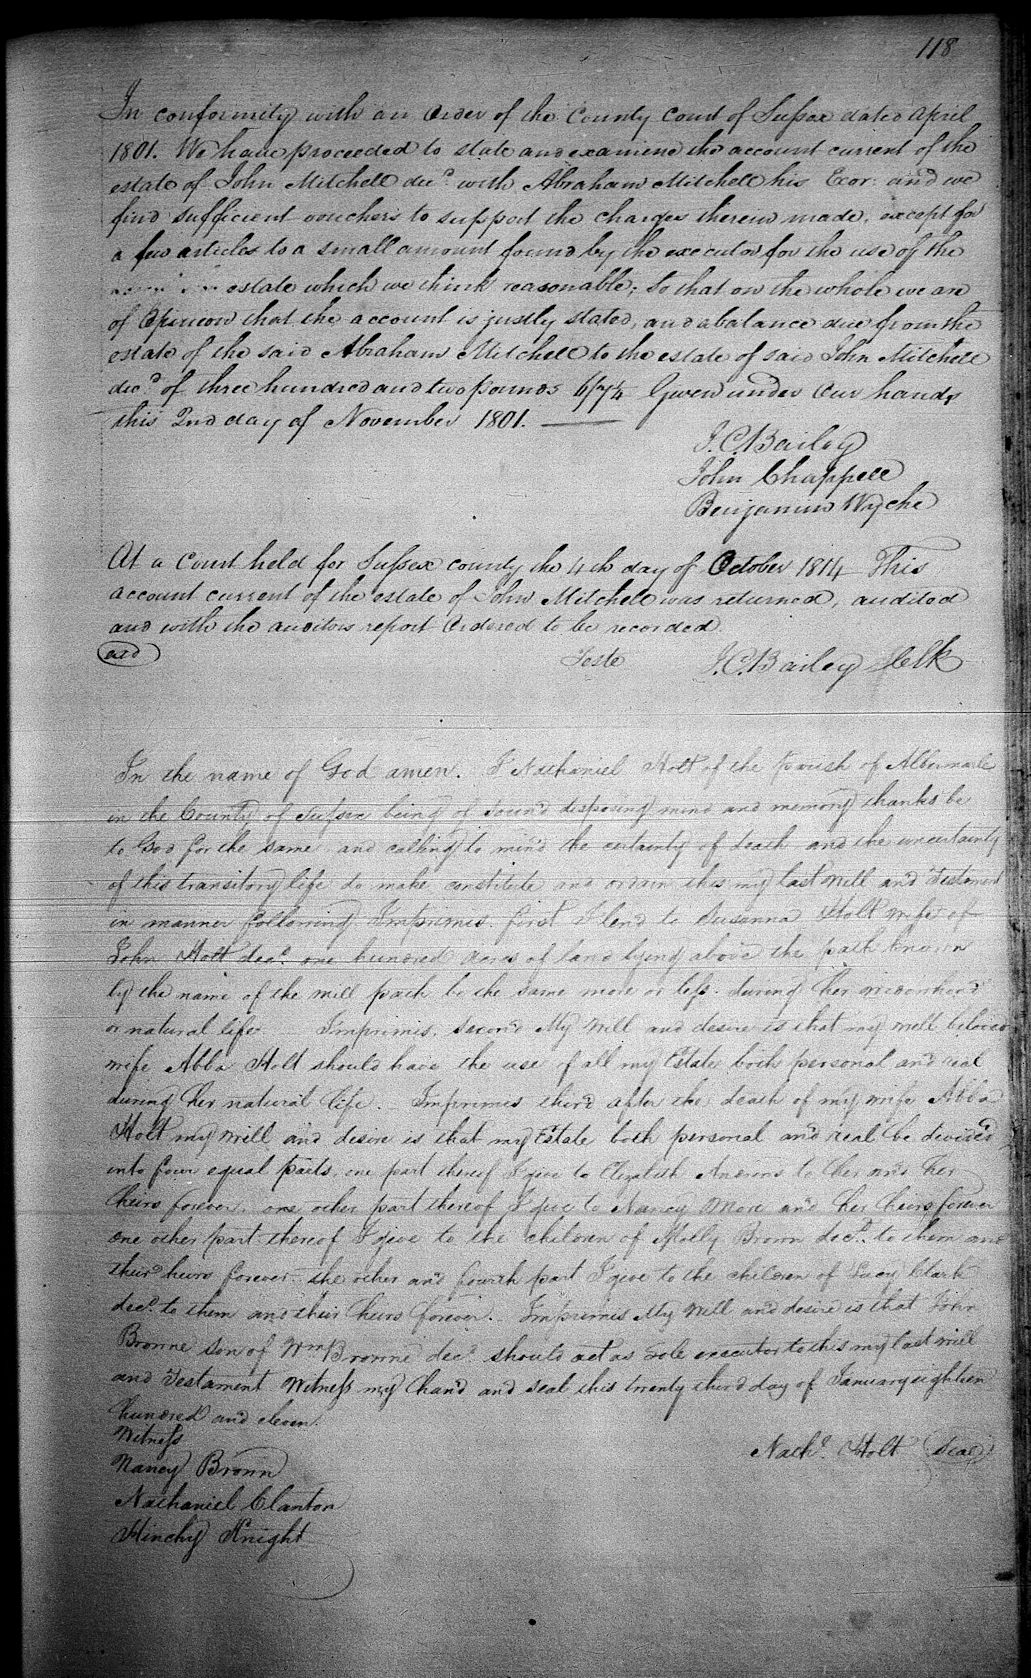 118
In conformity with an Order of the County Court of Sussex dated April
1801. We have proceeded to state and examine the account current of the
estate of John Mitchell decd. with Abraham Mitchell his Exor. and we
find sufficient vouchers to support the charges therein made, except for
a few articles to a small amount found by the executor for the use of the
estate which we think reasonable; so that on the whole we are
of Opinion that the account is justly stated, and a balance due from the
estate of the said Abraham Mitchell to the estate of said John Mitchell
decd. of three hundred and two pounds 6/7¼ Given under our hands
this 2nd day of November 1801.
J. C. Bailey
John Chappell
Benjamin Wyche
At a Court held for Sussex county the 4th day of October 1814 This
account current of the estate of John Mitchell was returned, audited
and with the auditors report Ordered to be recorded.
Teste J. C. Bailey Clk
In the name of God amen. I Nathaniel Holt of the Parish of Albemarle
in the County of Sussex being of sound disposing mind and memory thanks be
to God for the same and calling to mind the certainty of death and the uncertainty
of this transitory life do make constitute and ordain this my last Will and Testament
in manner following. Imprimis. first I lend to Susanna Holt wife of
John Holt decd. one hundred acres of land lying above the path known
by the name of the mill path be the same more or less. during her widowhood
or natural life. Imprimis. second My will and desire is that my well beloved
wife Abba Holt should have the use of all my Estate both personal and real
during her natural life. Imprimes third after the death of my wife Abba
Holt my will and desire is that my Estate both personal and real be devided
into four equal parts, one part thereof I give to Elizabeth Andrews to her and her
heirs forever. one other part thereof I give to Nancy More and her heirs forever
one other part thereof I give to the children of Molly Brown decd. to them and
their heirs forever. the other and fourth part I give to the children of Lucy Clark
decd. to them and their heirs forever. Imprimis My will and desire is that John
Browne son of Wm. Browne decd. should act as Sole executor to this my last will
and Testament Witness my hand and seal this twenty third day of January eighteen
hundred and eleven.
Witness
Nathl. Holt (Seal)
Nancy Brown
Nathaniel Clanton
Hinchy Knight